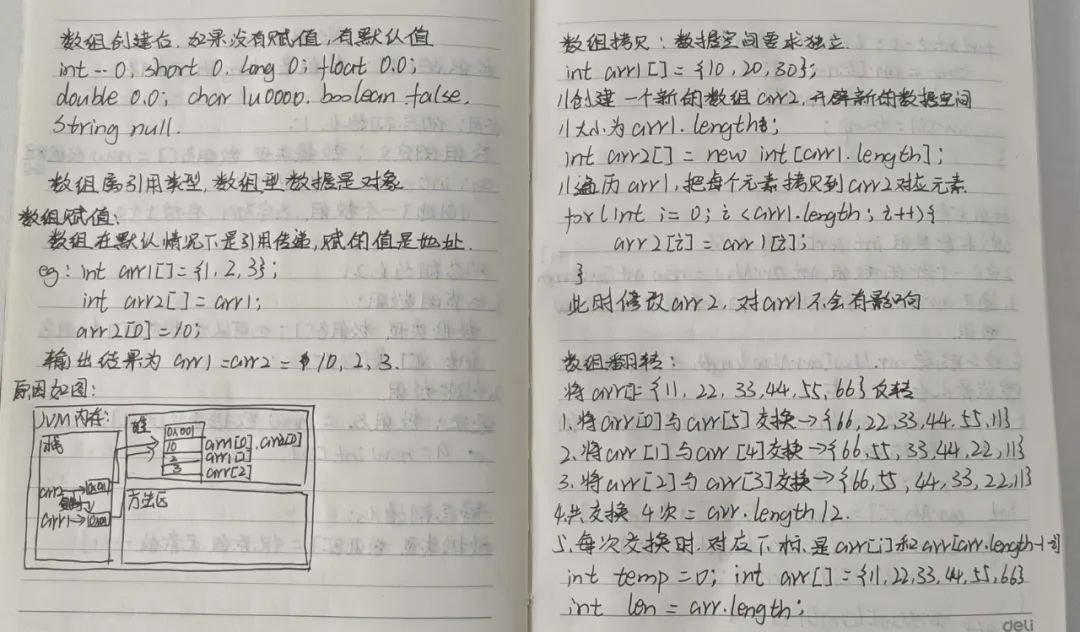 数组创建后,如果没有赋值,有默认值
int -- 0; short 0. long 0; float 0.0;
double 0.0; char \u0000. boolean false.
String null.
数组属引用类型,数组型数据是对象
数组赋值:
数组在默认情况下是引用传递,赋的值是地址.
eg: int arr1[] = {1, 2, 3};
int arr2[] = arr1;
arr2[0] = 10;
输出结果为 arr1 = arr2 = 10, 2, 3.
原因如图:
JVM内存:
栈
堆
0x001
10
2
3
arr1[0], arr2[0]
arr1[1]
arr[2]
arr2
arr1
方法区
数组拷贝: 数据空间要求独立.
int arr1[] = {10, 20, 30};
//创建一个新的数组arr2,开辟新的数据空间
//大小为arr1.length;
int arr2[] = new int[arr1.length];
//遍历arr1,把每个元素拷贝到arr2对应元素
for(int i = 0; i < arr1.length; i++){
arr2[i] = arr1[i];
}
此时修改arr2,对arr1不会有影响
数组翻转:
将arr[]= {11, 22, 33, 44, 55, 66} 反转
1. 将arr[0]与arr[5]交换→{66, 22, 33, 44, 55, 11}
2. 将arr[1]与arr[4]交换→{66, 55, 33, 44, 22, 11}
3. 将arr[2]与arr[3]交换→{66, 55, 44, 33, 22, 11}
4. 共交换 4次 = arr.length/2.
5. 每次交换时,对应下标是arr[i]和arr[arr.length-1-i]
int temp = 0; int arr[] = {11, 22, 33, 44, 55, 66}
int len = arr.length;
deli